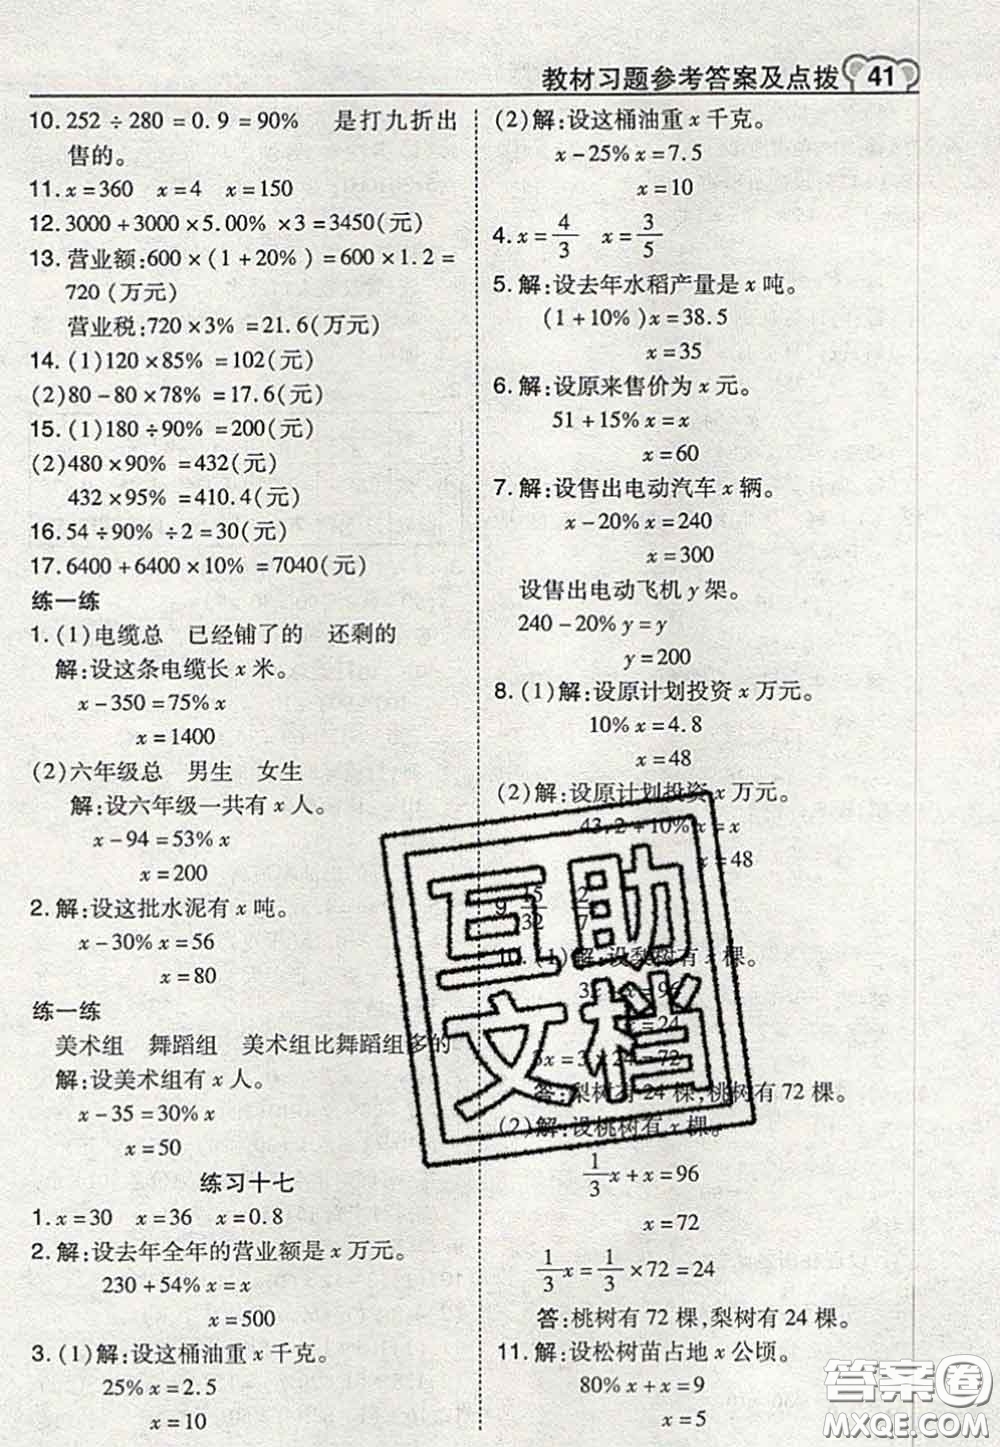 教材习题参考答案及点拨 41
10. 252÷280=0.9=90% 是打九折出
售的。
11. x=360 x=4 x=150
12. 3000+3000×5.00%×3=3450(元)
13. 营业额:600×(1+20%)=600×1.2=
720(万元)
营业税:720×3%=21.6(万元)
14. (1)120×85%=102(元)
(2)80-80×78%=17.6(元)
15. (1)180÷90%=200(元)
(2)480×90%=432(元)
432×95%=410.4(元)
16. 54÷90%÷2=30(元)
17. 6400+6400×10%=7040(元)
练一练
1. (1)电缆总 已经铺了的 还剩的
解:设这条电缆长 x 米。
x-350=75%x
x=1400
(2)六年级总 男生 女生
解:设六年级一共有 x 人。
x-94=53%x
x=200
2. 解:设这批水泥有 x 吨。
x-30%x=56
x=80
练一练
美术组 舞蹈组 美术组比舞蹈组多的
解:设美术组有 x 人。
x-35=30%x
x=50
练习十七
1. x=30 x=36 x=0.8
2. 解:设去年全年的营业额是 x 万元。
230+54%x=x
x=500
3. (1)解:设这桶油重 x 千克。
25%x=2.5
x=10
(2)解:设这桶油重 x 千克。
x-25%x=7.5
x=10
4. x=4/3 x=3/5
5. 解:设去年水稻产量是 x 吨。
(1+10%)x=38.5
x=35
6. 解:设原来售价为 x 元。
51+15%x=x
x=60
7. 解:设售出电动汽车 x 辆。
x-20%x=240
x=300
设售出电动飞机 y 架。
240-20%y=y
y=200
8. (1)解:设原计划投资 x 万元。
10%x=4.8
x=48
(2)解:设原计划投资 x 万元。
43.2+10%x=x
x=48
9. 15/32 2/7
10. (1)解:设梨树有 x 棵。
=96
x=24
3x=3×24=72
答:梨树有 24 棵,桃树有 72 棵。
(2)解:设桃树有 x 棵。
1/3x+x=96
x=72
1/3x=1/3×72=24
答:桃树有 72 棵,梨树有 24 棵。
11. 解:设松树苗占地 x 公顷。
80%x+x=9
x=5
互助
文档
答案圈
MXQE.COM